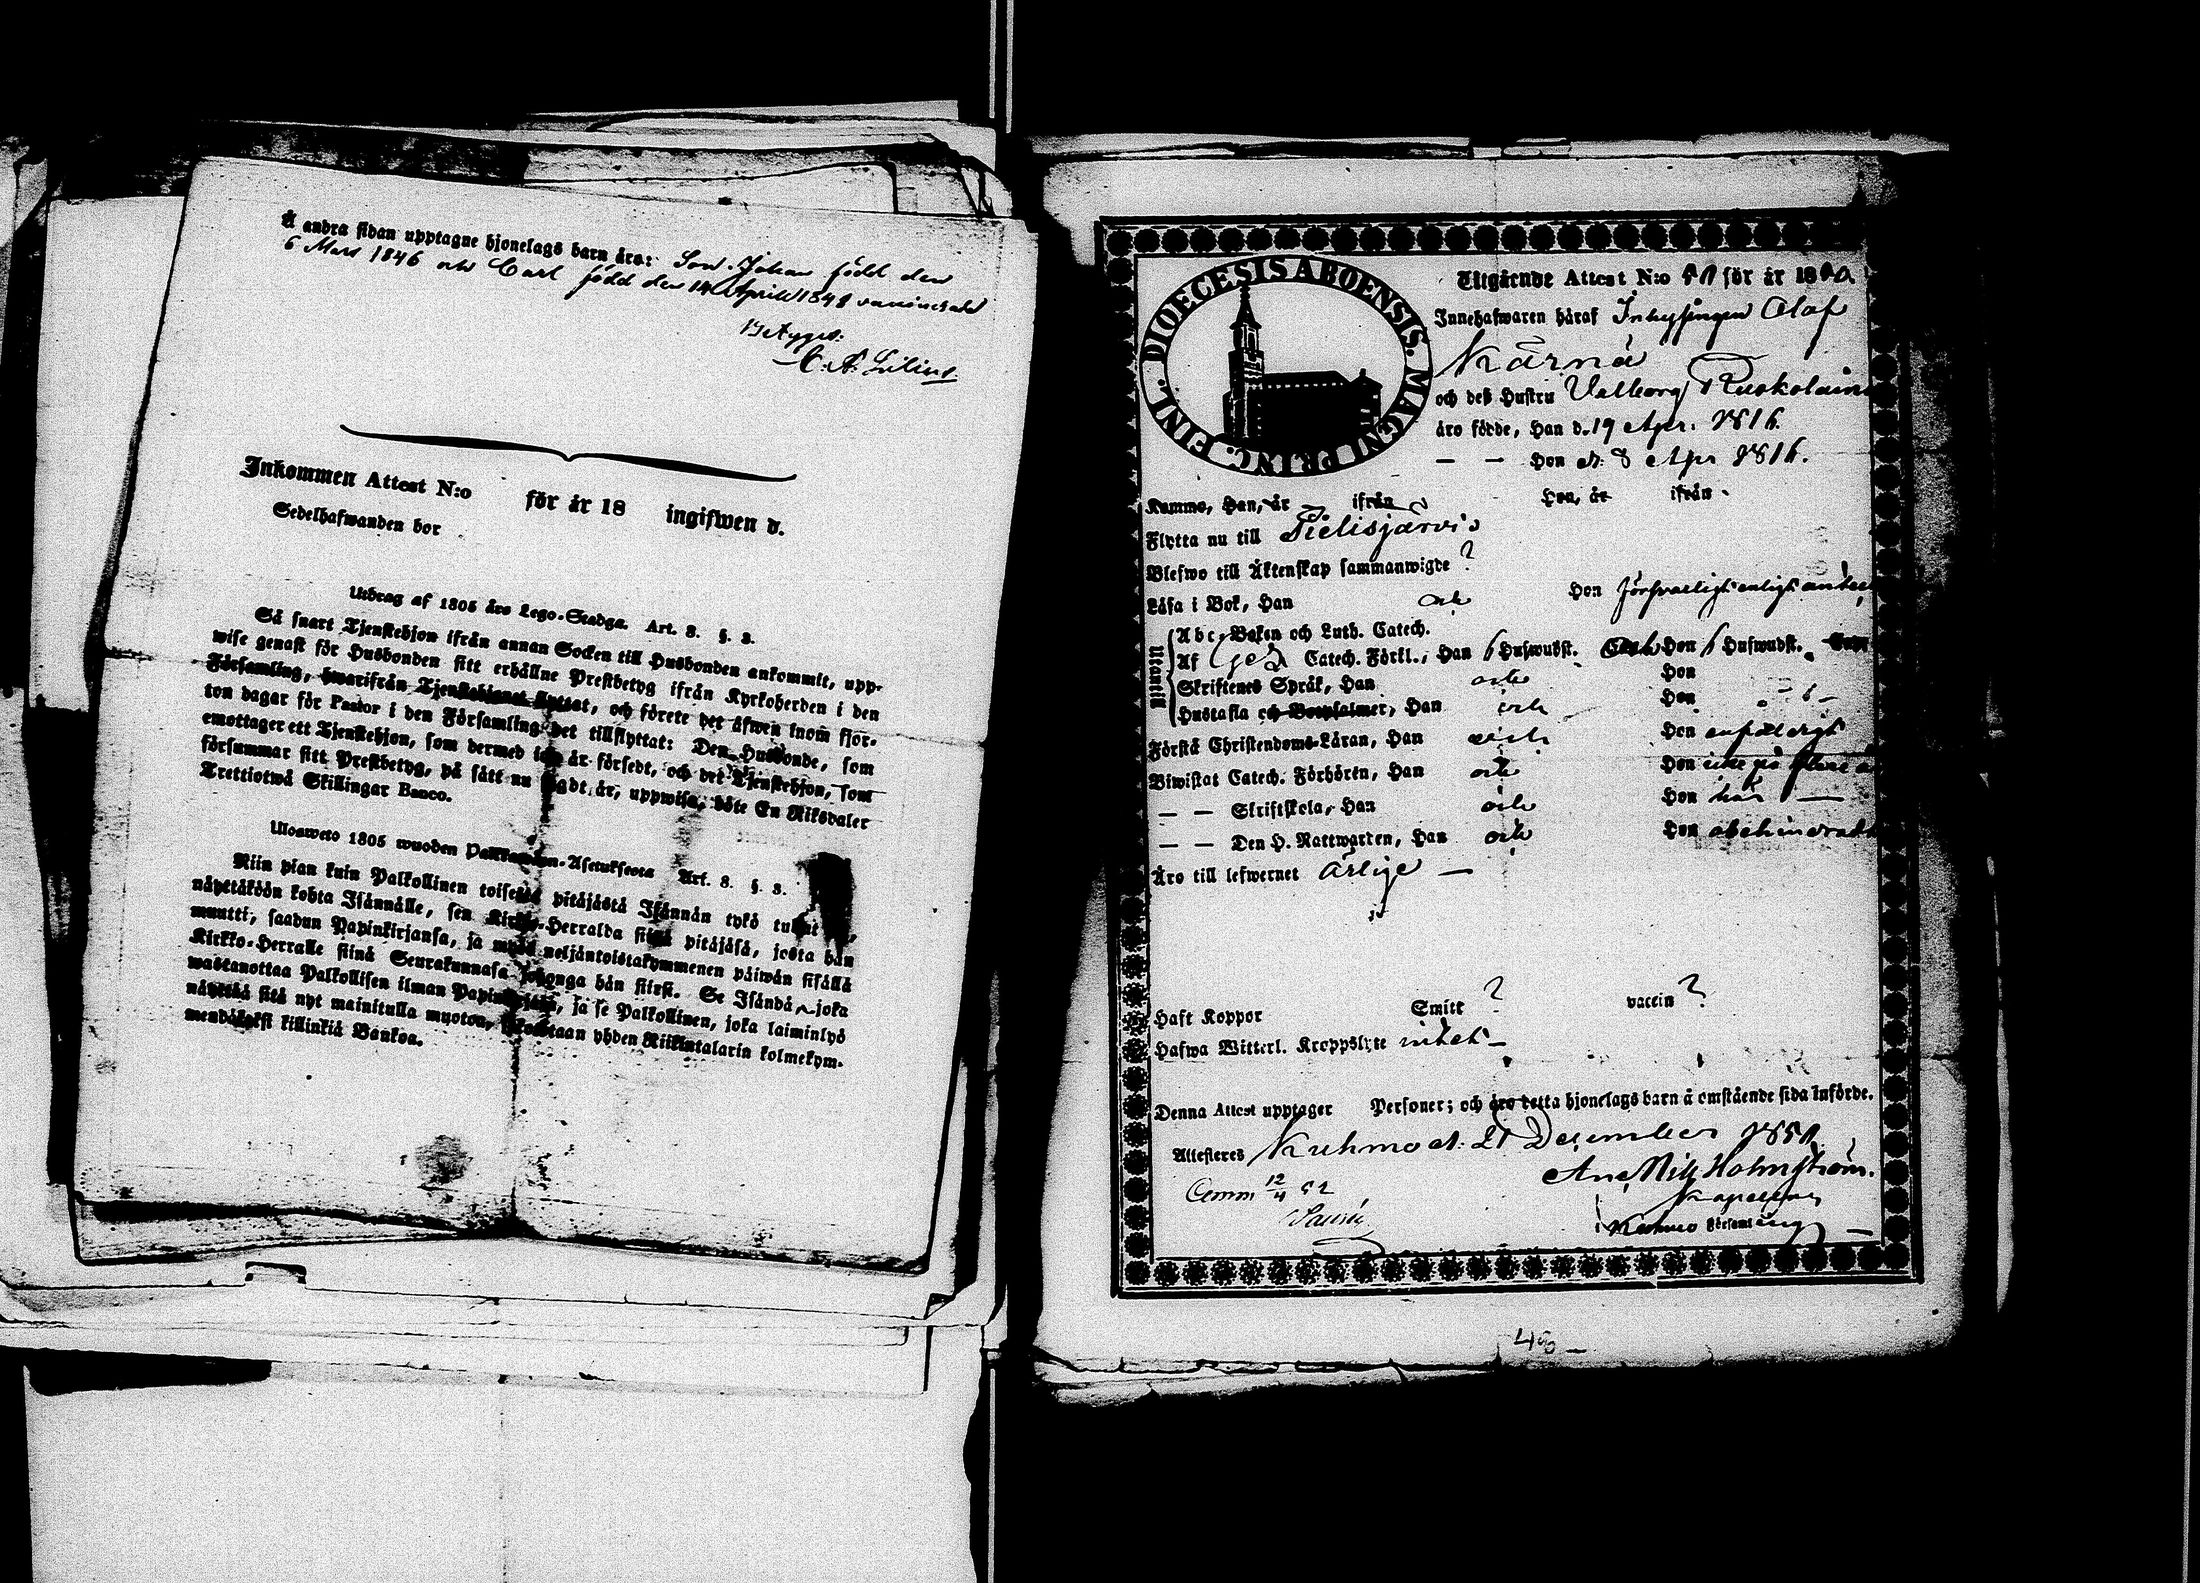 Å andra sidan upptagne hjonelags barn äro: Son Johan född den
6 Mars 1846 och Carl född den 14 Aprill 1848 vaccinerade
Betygar:
C. A. Lilius.
Inkommen Attest N:o för år 18 ingifwen d.
Sedelhafwanden bor
Utdrag af 1805 års Lego-Stadga. Art. 3. §. 3.
Så snart Tjenstehjon ifrån annan Socken till Husbonden ankommit, upp-
wise genast för Husbonden sitt erhållne Prestbetyg ifrån Kyrkoherden i den
Församling, hwarifrån Tjenstehjonet flyttat, och förete det äfwen inom fjor-
ton dagar för Pastor i den Församling det tillflyttat: Den Husbonde, som
emottager ett Tjenstehjon, som dermed icke är försedt, och det Tjenstehjon, som
försummar sitt Prestbetyg, på sätt nu sagdt är, uppwisa, böte En Riksdaler
Trettiotwå Skillingar Banco.
Ulosweto 1805 wuoden Palkkawäen-Asetuksesta Art. 3. §. 3.
Niin pian kuin Palkollinen toisesta pitäjästä Isännän tykö tullut
näyttäköön kohta Isännälle, sen Kirkko-Herralda siinä pitäjäsä, josta hän
muutti, saadun Papinkirjansa, ja myös neljäntoistakymmenen päiwän sisällä
Kirkko-Herralle siinä Seurakunnasa johonga hän siirsi. Se Isändä, joka
wastanottaa Palkollisen ilman Papinkirjata, ja se Palkollinen, joka laiminlyö
näyttää sitä nyt mainitulla muoton, sakotetaan yhden Riikintalarin kolmekym-
mendäkaksi killinkiä Bankoa.
DIOECESIS ABOENSIS. MAGNI PRINC. FINL.
Utgående Attest N:o för år 18
Innehafwaren häraf Inhysingen Olof
Kärnä
och deß Hustru Valborg Ruskolain
äro födde, Han d. 19 Apr. 1816.
— — Hon d. 8 Apr 1816.
Kommo, Han, år ifrån Hon, år ifrån
Flytta nu till Pielisjärvi
Blefwo till Äktenskap sammanwigde ?
Läsa i Bok, Han och Hon försvarligt enligt
Utantill
Abc-Boken och Luth. Catech.
Af Catech. Förkl., Han 6 Hufwudst. och Hon 6 Hufwudst.
Skriftenes Språk, Han och Hon
Hustafla och Botpsalmer, Han och Hon
Förstå Christendoms-Läran, Han och Hon enfaldigt
Biwistat Catech. Förhören, Han och Hon icke på
— — Skriftskola, Han och Hon här —
— — Den H. Nattwarden, Han och Hon
Äro till lefwernet ärlige —
Haft Koppor Smitt ? vaccin ?
Hafwa Witterl. Kroppslyte intet —
Denna Attest upptager Personer; och äro detta hjonelags barn å omstående sida införde.
Attesteras Kuhmo d. 21 December 1851
And. Wilh. Holmström.
Kapellan
i Kuhmo Församling
Comm 12/4 52
48 —